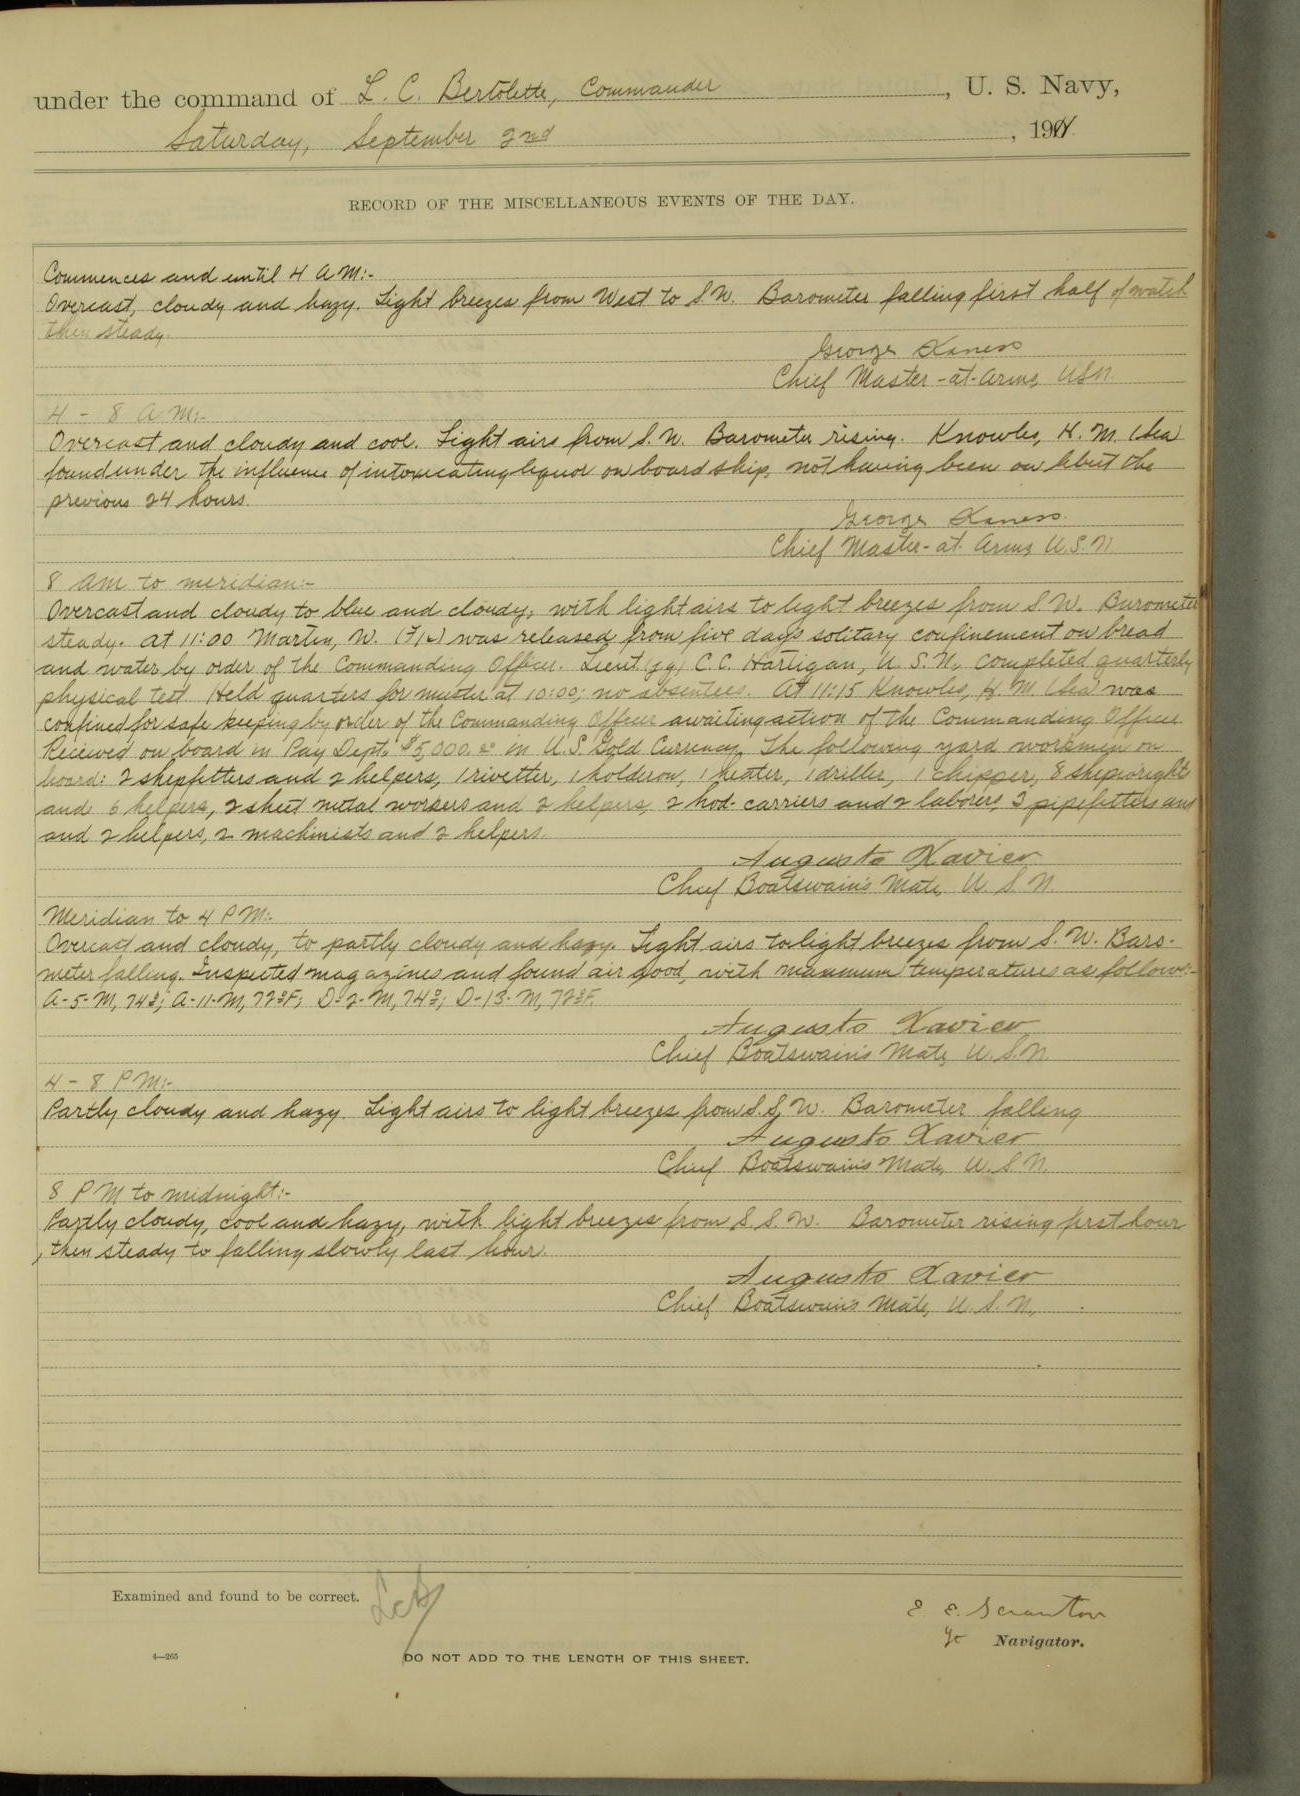 under the command of L. C. Bertolette, Commander, U. S. Navy,
Saturday, September 2nd, 1911
RECORD OF THE MISCELLANEOUS EVENTS OF THE DAY.
Commences and until 4 A M:-
Overcast, cloudy and hazy. Light breezes from West to S.W. Barometer falling first half of watch
then steady.
George
Chief Master-at-Arms, USN.
4 - 8 A M:-
Overcast and cloudy and cool. Light airs from S.W. Barometer rising. Knowles, H. M. (Sea)
found under the influence of intoxicating liquor on board ship, not having been on libert the
previous 24 hours.
George
Chief Master-at-Arms, U.S.N
8 AM to meridian:-
Overcast and cloudy to blue and cloudy, with light airs to light breezes from S.W. Barometer
steady. At 11:00 Martin, W. (F1c) was released from five days solitary confinement on bread
and water by order of the Commanding Officer. Lieut (jg) C.C. Hartigan, U.S.N., completed quarterly
physical test. Held quarters for muster at 10:00; no absentees. At 11:15 Knowles, H. M. (Sea) was
confined for safe keeping by order of the Commanding Officer awaiting action of the Commanding Officer
Received on board in Pay Dept. $5,000.00 in U.S. Gold Currency. The following yard workmen on
board: 2 shipfitters and 2 helpers, 1 rivetter, 1 holderon, 1 heater, 1 driller, 1 chipper, 8 shipwright
and 6 helpers, 2 sheet metal workers and 2 helpers, 2 hod-carriers and 2 laborers, 3 pipefitters and
and 2 helpers, 2 machinists and 2 helpers.
Augusto Xavier
Chief Boatswain's Mate, U.S.N.
Meridian to 4 P M:-
Overcast and cloudy, to partly cloudy and hazy. Light airs to light breezes from S.W. Baro-
meter falling. Inspected magazines and found air good, with maximum temperatures as follows:-
A-5-M, 74°; A-11-M, 72°F; D-2-M, 74°; D-13-M, 72°F.
Augusto Xavier
Chief Boatswain's Mate, U.S.N.
4 - 8 P M:-
Partly cloudy and hazy. Light airs to light breezes from S.S.W. Barometer falling
Augusto Xavier
Chief Boatswain's Mate, U.S.N.
8 P M to midnight:-
Partly cloudy, cool and hazy, with light breezes from S.S.W. Barometer rising first hour
, then steady to falling slowly last hour.
Augusto Xavier
Chief Boatswain's Mate, U.S.N.,
Examined and found to be correct. LCB
E. E. Scranton
Navigator.
4—265
DO NOT ADD TO THE LENGTH OF THIS SHEET.